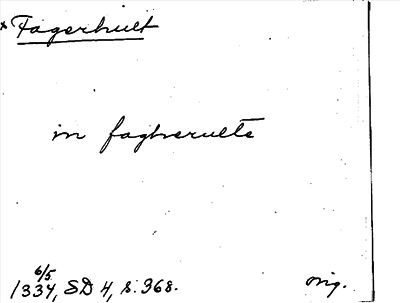 × Fagerhult
in faghærulte
6/5
1334, SD 4, s. 368.
orig.